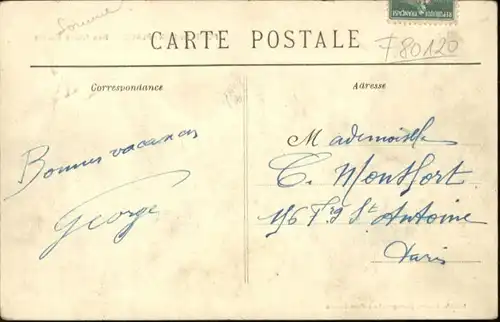 Somme
RÉPUBLIQUE FRANÇAISE
CARTE POSTALE
F80120
Correspondance
Adresse
Bonnes vacances
George
Mademoiselle
C. Montfort
156 Frg St. Antoine
Paris